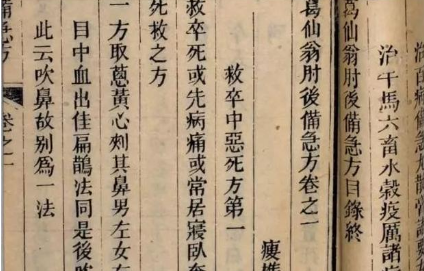 治百病備急丸散膏諸要方
治牛馬六畜水穀疫厲諸病
葛仙翁肘後備急方目錄終
葛仙翁肘後備急方卷之一
救卒中惡死方第一
救卒死或先病痛或常居寢臥奄
死救之方
一方取葱黃心刺其鼻男左女右
目中血出佳扁鵲法同是後吹
此云吹鼻故別爲一法
備急方
卷之一